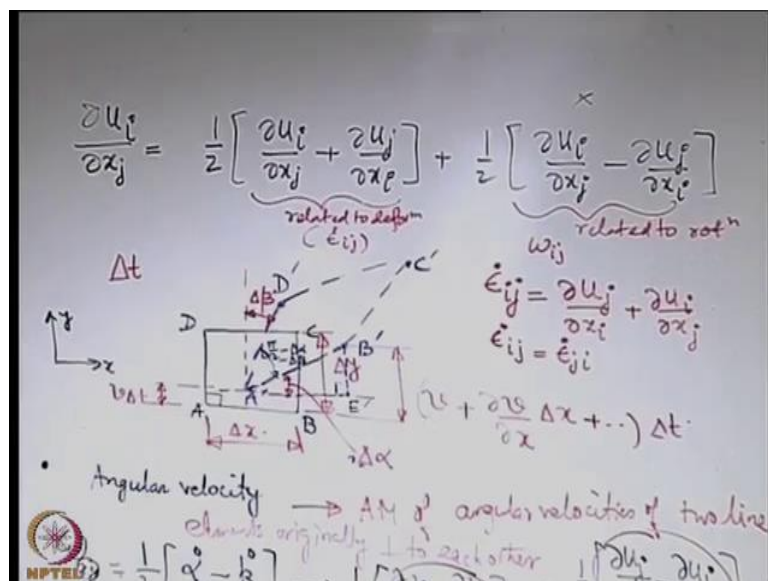 ∂u_i/∂x_j = 1/2 [∂u_i/∂x_j + ∂u_j/∂x_i] + 1/2 [∂u_i/∂x_j - ∂u_j/∂x_i]
×
related to deform^n
related to rot^n
(ε̇_ij)
ω_ij
Δt
ε̇_ij = ∂u_j/∂x_i + ∂u_i/∂x_j
ε̇_ij = ε̇_ji
y
x
D
D
C
C'
Δβ
A'
B'
E
A
B
vΔt
Δy
Δx
Δα
(v + ∂v/∂x Δx + ...) Δt
Angular velocity → AM of angular velocities of two line
elements originally ⊥ to each other
= 1/2 [α̇ - β̇]
NPTEL